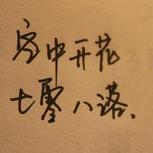 窗中开花
七零八落、